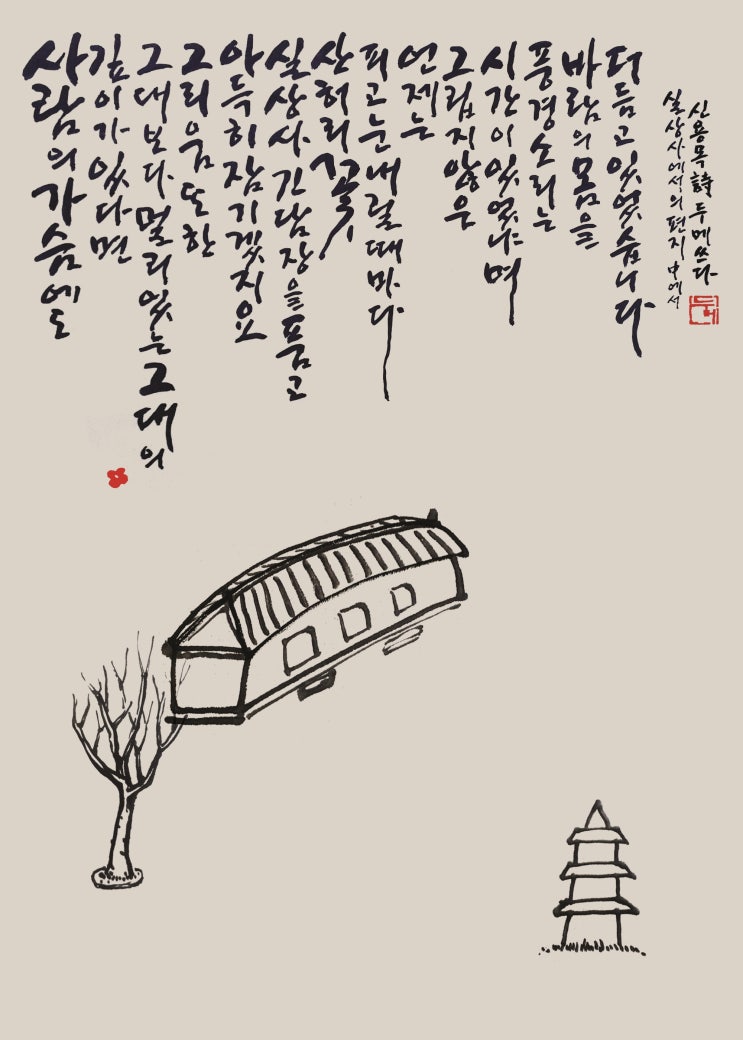 사람의 가슴에도
깊이가 있다면
그대보다 멀리 있는 그대의
그리움 또한
아득히 잠기겠지요
실상사 긴 담장을 품고
산허리 꽃
피고 눈 내릴 때마다
언제는
그립지 않은
시간이 있었냐며
풍경소리는
바람의 몸을
더듬고 있었습니다
실상사에서의 편지 中에서
신용목 詩 두메 쓰다
두메